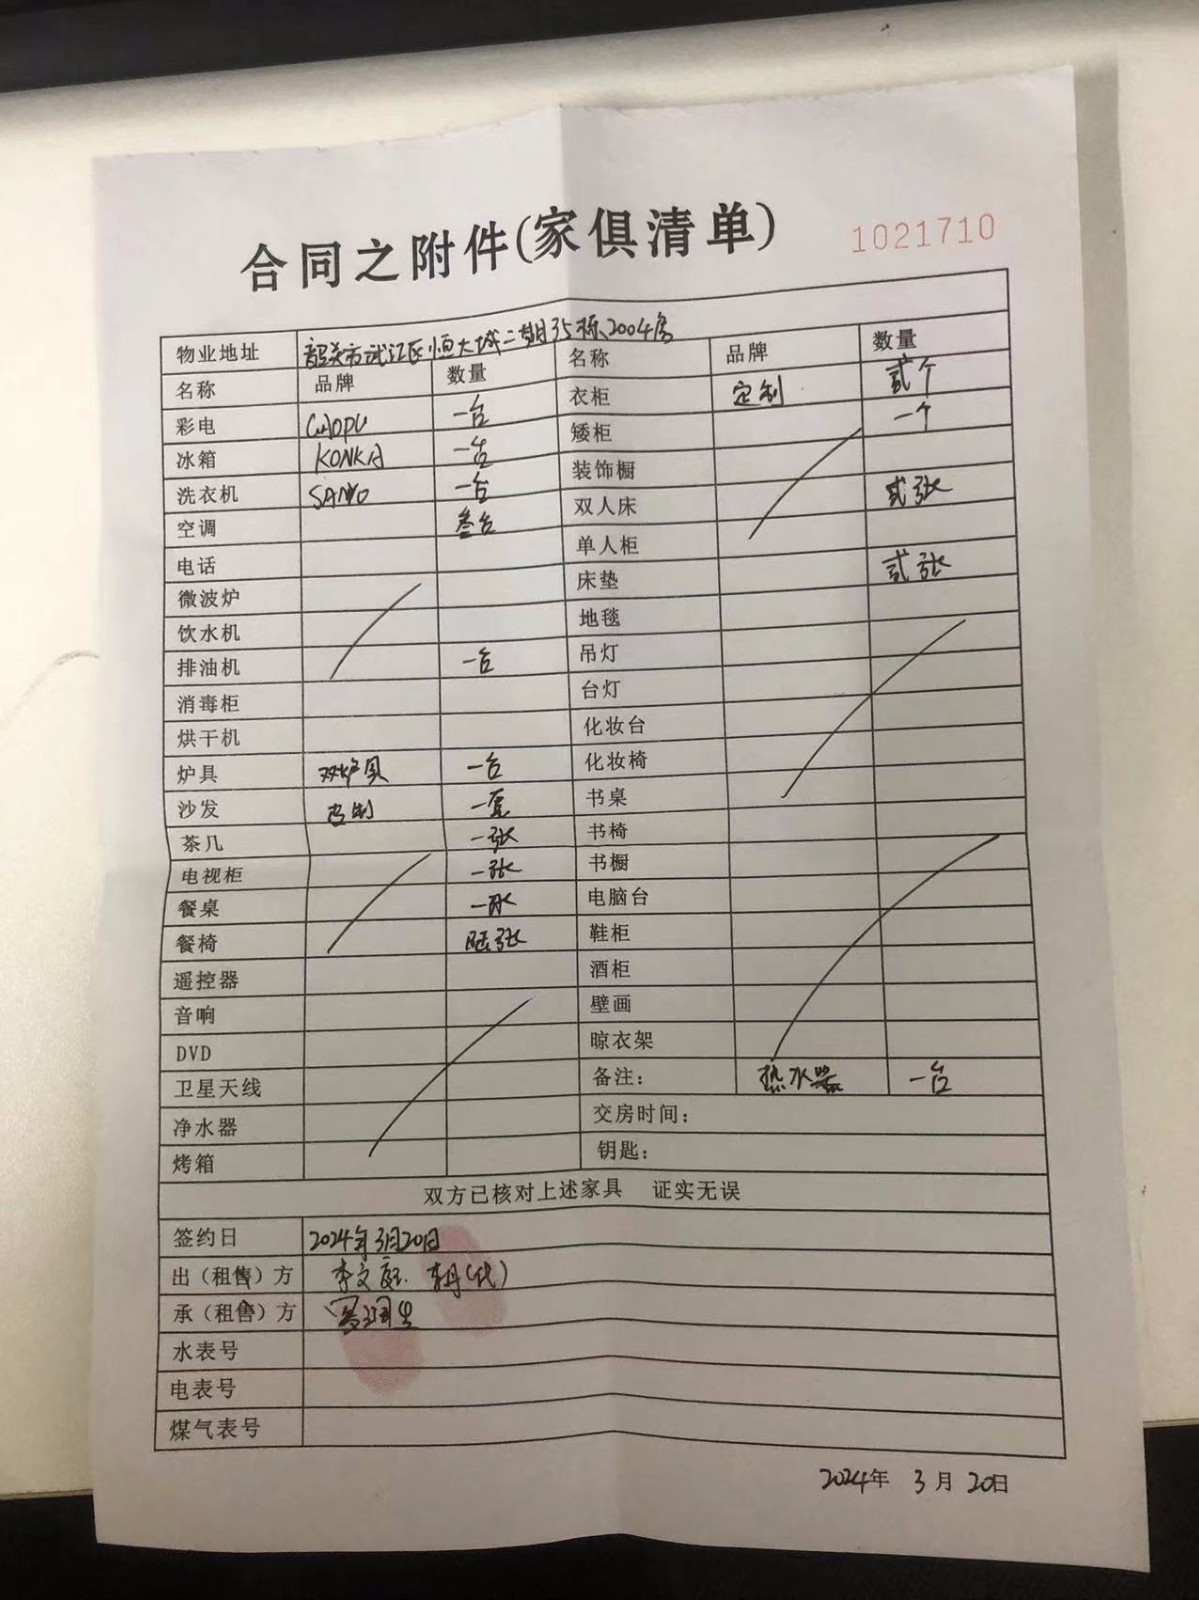 合同之附件(家俱清单)
1021710
物业地址 韶关市武江区恒大城二期35栋2004房
名称 品牌 数量 名称 品牌 数量
彩电 一台 衣柜 定制 贰个
冰箱 KONKA 一台 矮柜 一个
洗衣机 SANYO 一台 装饰橱
空调 叁台 双人床 贰张
电话 单人柜
微波炉 床垫 贰张
饮水机 地毯
排油机 一台 吊灯
消毒柜 台灯
烘干机 化妆台
炉具 双炉具 一台 化妆椅
沙发 一套 书桌
茶几 一张 书椅
电视柜 一张 书橱
餐桌 一张 电脑台
餐椅 陆张 鞋柜
遥控器 酒柜
音响 壁画
DVD 晾衣架
卫星天线 备注: 热水器 一台
净水器 交房时间:
烤箱 钥匙:
双方已核对上述家具 证实无误
签约日 2024年3月20日
出(租售)方 李文 (代)
承(租售)方
水表号
电表号
煤气表号
2024年 3月 20日